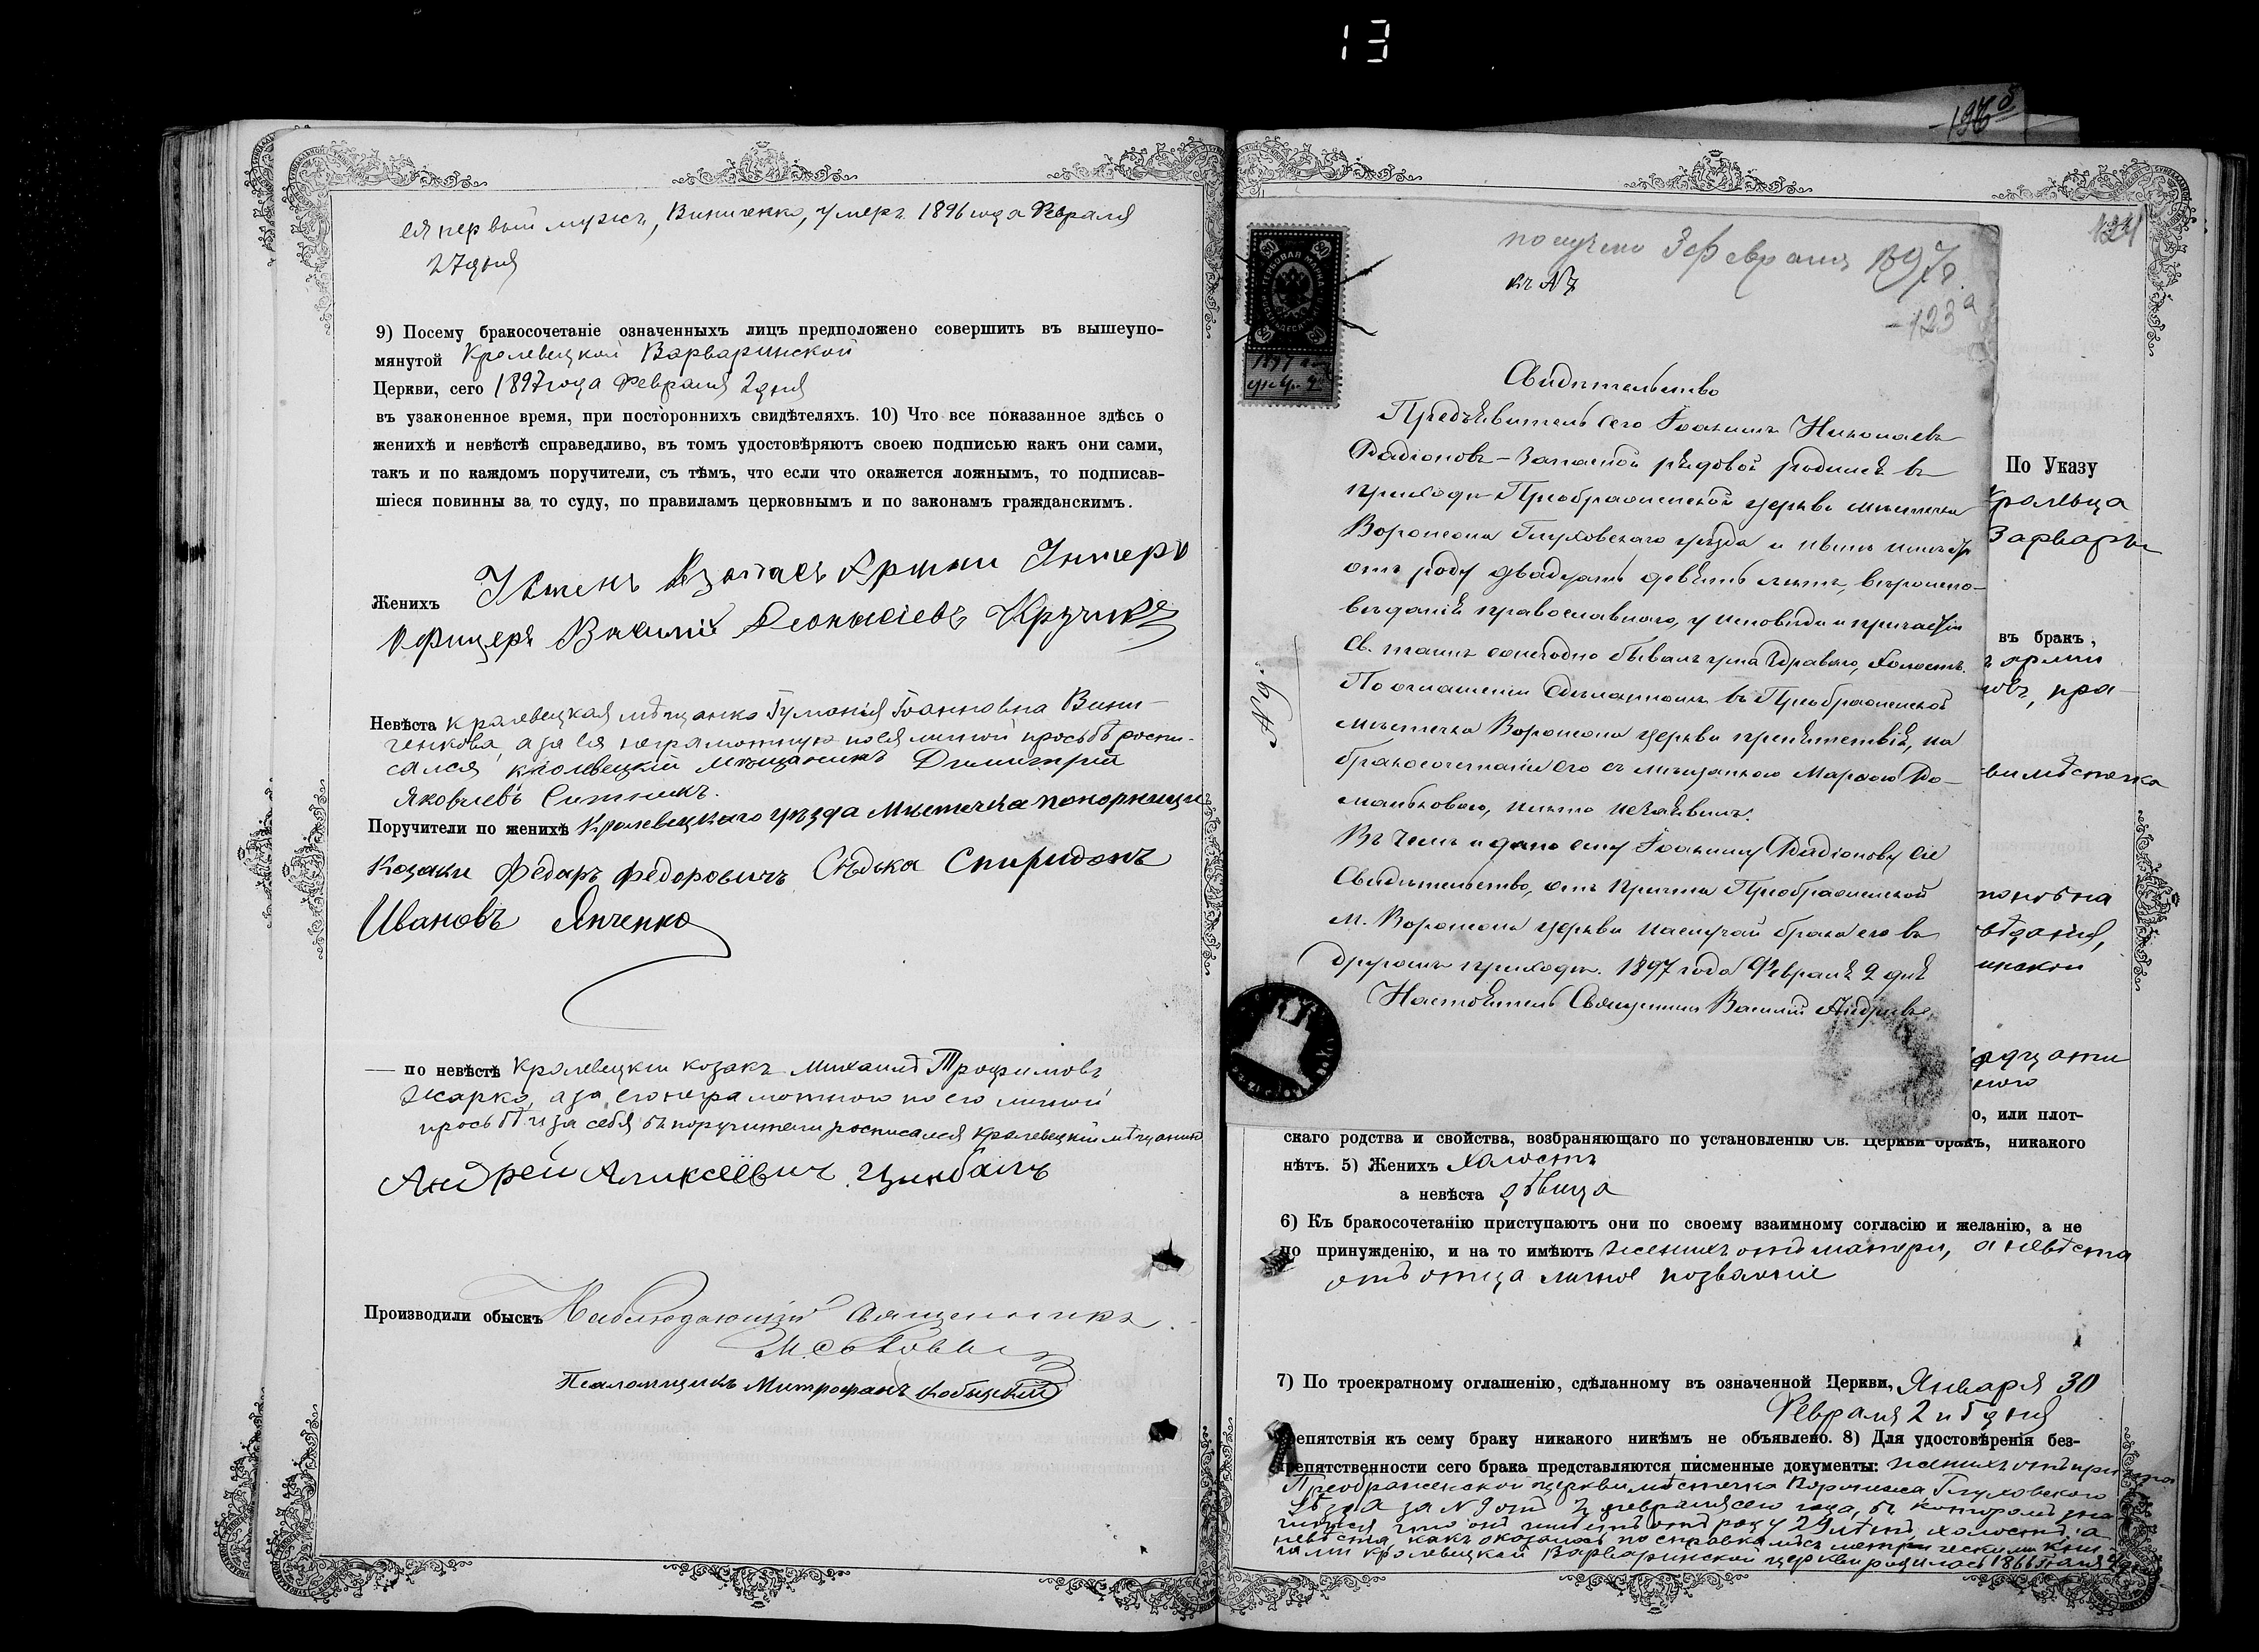 13
ея первый мужъ, Виниченко, умеръ 1896 года Февраля
27 дня
9) Посему бракосочетаніе означенныхъ лицъ предположено совершить въ вышеупо-
мянутой Кролевецкой Варваринской
Церкви, сего 1897 года Февраля 2 дня
въ узаконенное время, при постороннихъ свидѣтеляхъ. 10) Что все показанное здѣсь о
женихѣ и невѣстѣ справедливо, въ томъ удостовѣряютъ своею подписью какъ они сами,
такъ и по каждомъ поручители, съ тѣмъ, что если что окажется ложнымъ, то подписав-
шіеся повинны за то суду, по правиламъ церковнымъ и по законамъ гражданскимъ.
Женихъ
офицеръ
Невѣста кролевецкая мѣщанка Іоанновна Вини-
ченкова, а за ея неграмотную по ея личной просьбѣ роспи-
сался кролевецкій мѣщанинъ Димитрій
Яковлевъ Ситникъ.
Поручители по женихѣ Кролевецкаго уѣзда Мѣстечка Понорницы
Козаки Федаръ Федоровичъ Сѣдька Спиридонъ
Ивановъ Янченко
— по невѣстѣ Кролевецкій козакъ Михаилъ Трофимовъ
Жарко, а за его неграмотного по его личной
просьбѣ и за себя въ поручители росписался Кролевецкій мѣщанинъ
Андрей Аликсѣевич Цинбалъ
Производили обыскъ Наблюдающій Священникъ
Псаломщикъ Митрофанъ
196б
124
получено 3 февраля 1897 г.
къ №7
123а
ГЕРБОВАЯ МАРКА
80
1897 год
февр. 2
Свидѣтельство
Предъявитель сего Іоакимъ Николаевъ
Радіоновъ – Запасной рядовой родился въ
приходѣ Преображенской церкви мѣстечка
Воронежа Глуховскаго уѣзда и нынѣ имѣетъ
отъ роду двадцать девять лѣтъ, вѣроиспо-
вѣданія православнаго, у исповѣди и причастія
Св. таинъ ежегодно бывалъ ума здраваго, холостъ.
По оглашеніи сдѣланномъ въ Преображенской
мѣстечка Воронежа церкви препятствія, на
бракосочетаніе его съ мѣщанкою Марѳою До-
маньковою, никто не заявилъ.
Въ чемъ и дано ему Іоакиму Радіонову сіе
Свидѣтельство, отъ причта Преображенской
м. Воронежа церкви на случай брака его въ
другомъ приходѣ. 1897 года Февраля 2 дня
Настоятель Священникъ Василій Андріевъ
№ 9.
По Указу
Кролевца
Варвары
въ бракъ,
арміи
мѣстечка
или плот-
скаго родства и свойства, возбраняющаго по установленію Св. Церкви бракъ, никакого
нѣтъ. 5) Женихъ холостъ
а невѣста дѣвица
6) Къ бракосочетанію приступаютъ они по своему взаимному согласію и желанію, а не
по принужденію, и на то имѣютъ женихъ отъ матери, а невѣста
отъ отца личное позволеніе
7) По троекратному оглашенію, сдѣланному въ означенной Церкви, Января 30
Февраля 2 и 5 дня
препятствія къ сему браку никакого никѣмъ не объявлено. 8) Для удостовѣренія без-
препятственности сего брака представляются писменные документы: женихъ отъ причта
Преображенской церкви мѣстечка Воронежа Глуховского
уѣзда за №9 отъ 2 февраля сего года, въ которомъ зна-
чится что онъ имѣетъ отъ роду 29 лѣтъ, холостъ; а
невѣста, какъ оказалось по справкамъ съ метрическими кни-
гами кролевецкой Варваринской церкви родилась 1866